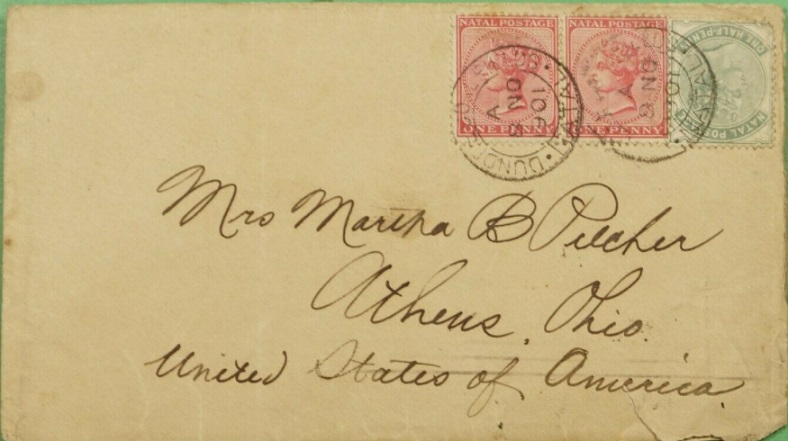 NATAL POSTAGE
ONE PENNY
NATAL POSTAGE
ONE PENNY
ONE HALF-PENNY
NATAL
NO
NATAL
NO
Mrs Martha B Pilcher
Athens, Ohio.
United States of America.